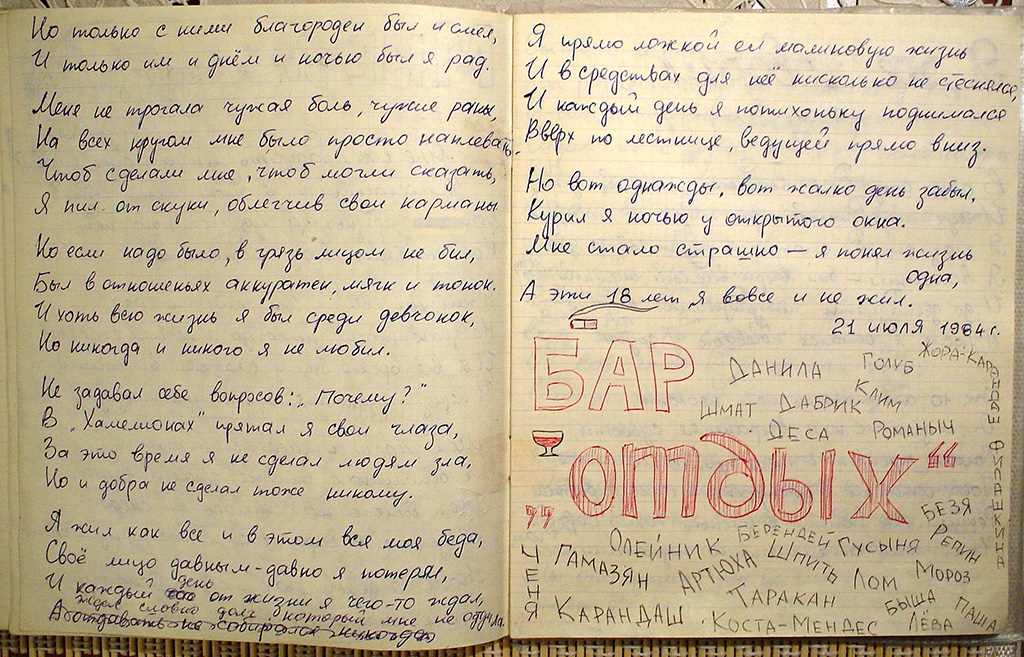 Но только с ними благороден был и смел,
И только им и днём и ночью был я рад.
Меня не трогала чужая боль, чужие раны,
На всех кругом мне было просто наплевать.
Чтоб сделали мне, чтоб могли сказать,
Я пил от скуки, облегчив свои карманы
Но если надо было, в грязь лицом не бил,
Был в отношеньях аккуратен, мягк и тонок.
И хоть всю жизнь я был среди девчонок,
Но никогда и никого я не любил.
Не задавал себе вопросов: „Почему?"
В „Хамелионах" прятал я свои глаза,
За это время я не сделал людям зла,
Но и добра не сделал тоже никому.
Я жил как все и в этом вся моя беда,
Своё лицо давным-давно я потерял,
И каждый день от жизни я чего-то ждал,
Ждал словно долг который мне не отдали
А отдавать не собирался никогда
Я прямо ложкой ел малиновую жизнь
И в средствах для неё нисколько не стеснялся,
И каждый день я потихоньку поднимался
Вверх по лестнице, ведущей прямо вниз.
Но вот однажды, вот жалко день забыл,
Курил я ночью у открытого окна.
Мне стало страшно — я понял жизнь
одна,
А эти 18 лет я вовсе и не жил.
21 июля 1984 г.
БАР
ДАНИЛА
ГОЛУБ
ЖОРА-КАР
ШМАТ
ДАБРИК
КЛИМ
ДЕСА
РОМАНЫЧ
ФИЛАШКИНА
„ОТДЫХ"
БЕЗЯ
ЧЕНЯ
ГАМАЗЯН
ОЛЕЙНИК
БЕРЕНДЕЙ
ГУСЫНЯ
РЕПИН
АРТЮХА
ШПИТЬ
ЛОМ
МОРОЗ
КАРАНДАШ
ТАРАКАН
БЫША
ПАША
КОСТА-МЕНДЕС
ЛЁВА